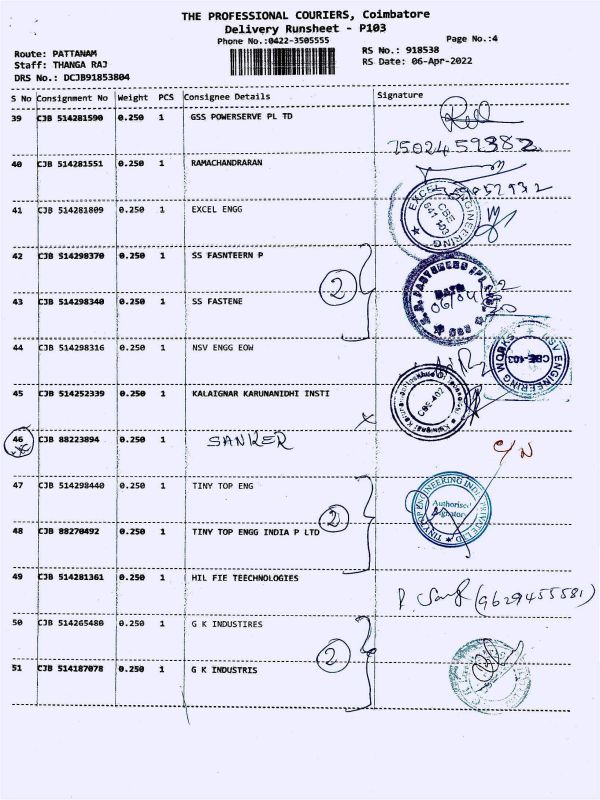 THE PROFESSIONAL COURIERS, Coimbatore
Delivery Runsheet - P103
Phone No.:0422-3505555
Page No.:4
Route: PATTANAM
Staff: THANGA RAJ
DRS No.: DCJB91853804
RS No.: 918538
RS Date: 06-Apr-2022
S No Consignment No Weight PCS Consignee Details Signature
39 CJB 514281590 0.250 1 GSS POWERSERVE PL TD
7502459382
40 CJB 514281551 0.250 1 RAMACHANDRARAN
41 CJB 514281809 0.250 1 EXCEL ENGG
EXCEL ENGINEERING
CBE
641 103
42 CJB 514298370 0.250 1 SS FASNTEERN P
2
43 CJB 514298340 0.250 1 SS FASTENE
DATE
06/04/
44 CJB 514298316 0.250 1 NSV ENGG EOW
NSV ENGINEERING WORKS
CBE-103
45 CJB 514252339 0.250 1 KALAIGNAR KARUNANIDHI INSTI
CBE-402
46 CJB 88223894 0.250 1 SANKER
C/N
47 CJB 514298440 0.250 1 TINY TOP ENG
2
Authorised
Signatory
48 CJB 88270492 0.250 1 TINY TOP ENGG INDIA P LTD
49 CJB 514281361 0.250 1 HIL FIE TEECHNOLOGIES
(9629455581)
50 CJB 514265480 0.250 1 G K INDUSTIRES
2
51 CJB 514187078 0.250 1 G K INDUSTRIS